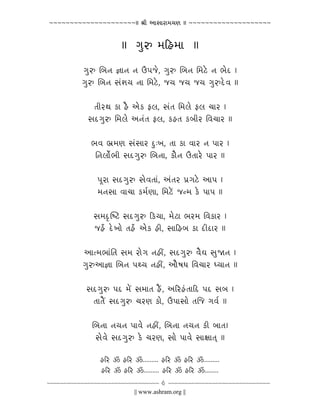 ~~~~~~~~~~~~~~~~~~~~~~॥ શ્રી આસારામાયણ ॥ ~~~~~~~~~~~~~~~~~~~~~
॥ ગુરુ મહિમા ॥
ગુરુ બિન જ્ઞાન ન ઉપજે, ગુરુ બિન મિટે ન ભેદ ।
ગુરુ બિન સંશય ના મિટે, જય જય જય ગુરુદેવ ॥
તીરથ કા હૈ એક ફલ, સંત મિલે ફલ ચાર ।
સદગુરુ મિલે અનંત ફલ, કહત કબીર વિચાર ॥
ભવ ભ્રમણ સંસાર દુઃખ, તા કા વાર ન પાર ।
નિર્લોભી સદગુરુ બિના, કૌન ઉતારે પાર ॥
પૂરા સદગુરુ સેવતાં, અંતર પ્રગટે આપ ।
મનસા વાચા કર્મણા, મિટેં જન્મ કે પાપ ॥
સમદૃષ્ટિ સદગુરુ કિયા, મેટા ભરમ વિકાર ।
જહઁ દેખો તહઁ એક હી, સાહિબ કા દીદાર ॥
આત્મભ્રાંતિ સમ રોગ નહીં, સદગુરુ વૈદ્ય સુજાન ।
ગુરુઆજ્ઞા બિન પથ્ય નહીં, ઔષધ વિચાર ધ્યાન ॥
સદગુરુ પદ મેં સમાત હૈં, અરિહંતાદિ પદ સબ ।
તાતૈં સદગુરુ ચરણ કો, ઉપાસો તજિ ગર્વ ॥
બિના નયન પાવે નહીં, બિના નયન કી બાત।
સેવે સદગુરુ કે ચરણ, સો પાવે સાક્ષાત્ ॥
હરિ ૐ હરિ ૐ......... હરિ ૐ હરિ ૐ.........
હરિ ૐ હરિ ૐ......... હરિ ૐ હરિ ૐ........
6
|| www.ashram.org ||